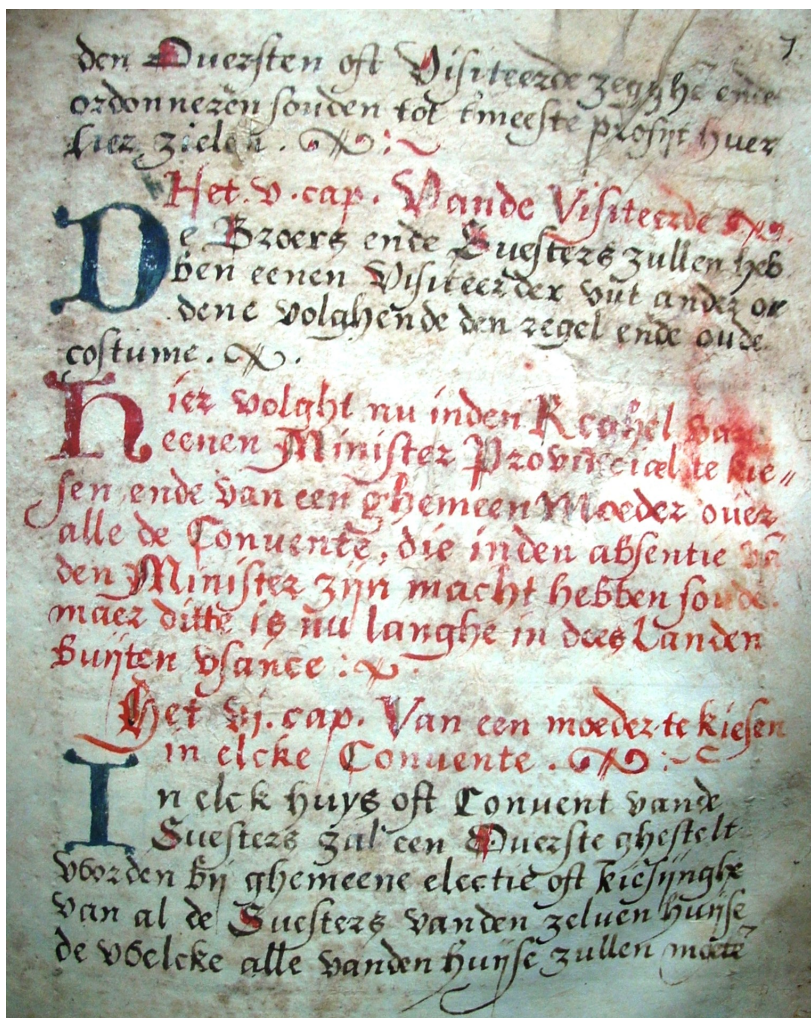 7
den Ouersten oft Visiteerde zegghē ende
ordonneren souden tot tmeeste profijt huer
lier zielen.
Het .v. cap. Vande Visiteerde
De Broers ende Suesters zullen heb
ben eenen Visiteerder vut ander or
dene volghende den regel ende oude
costume.
Hier volght nu inden Reghel van
eenen Minister Provinciael te kie
sen ende van een ghemeen Moeder ouer
alle de Conuentē, die inden absentie vā
den Minister zijn macht hebben soude.
maer ditte is nu langhe in dees Landen
buijten vsance :
Het vj. cap. Van een moeder te kiesen
in elcke Conuente.
In elck huys oft Conuent vande
Suesters zal een Ouerste ghestelt
worden bij ghemeene electie oft kiesijnghe
van al de Suesters vanden zeluen huijse
de welcke alle vanden huijse zullen moetē